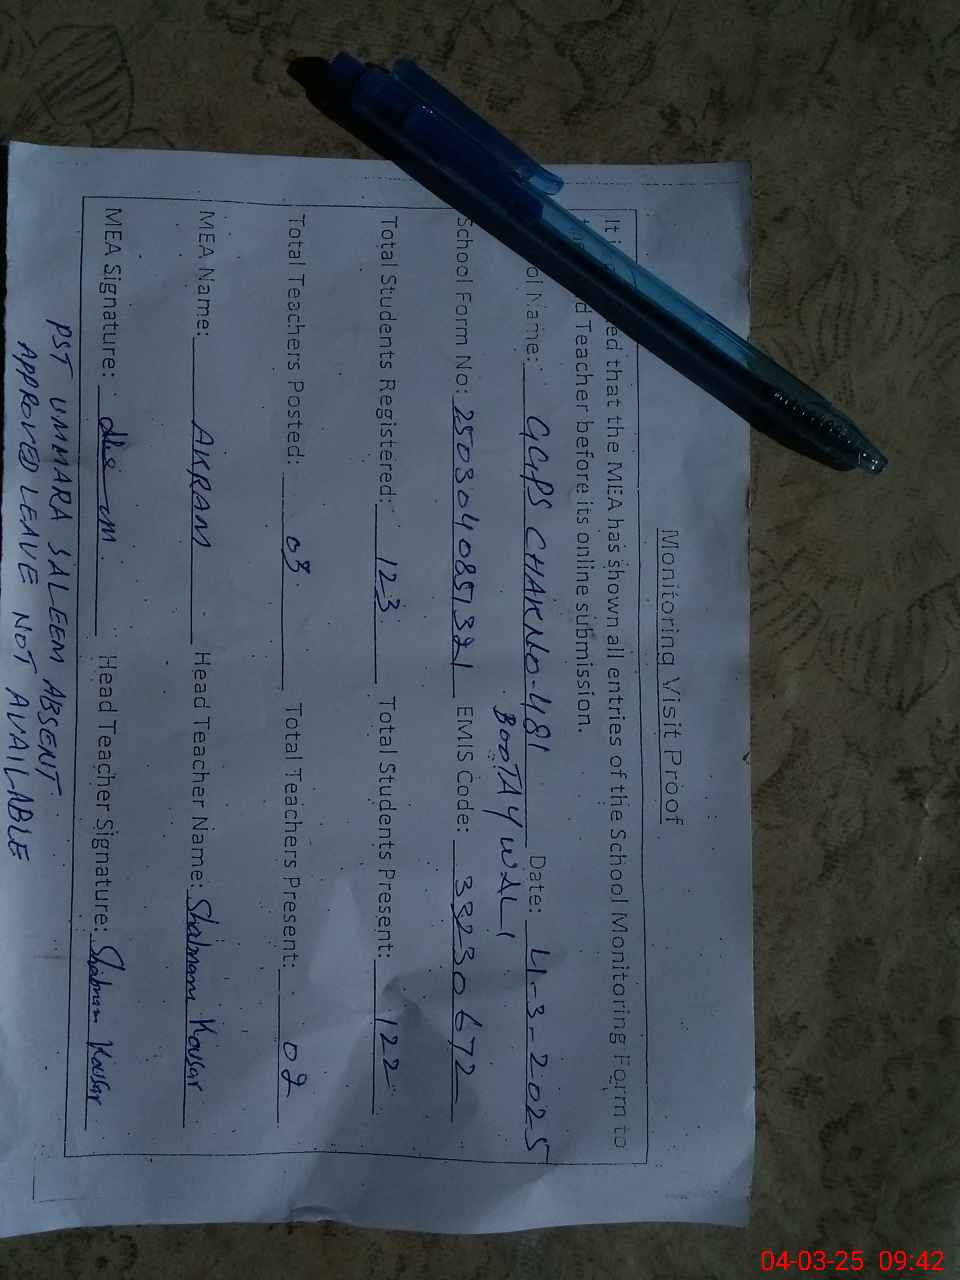 Monitoring Visit Proof
It ed that the MEA has shown all entries of the School Monitoring Form to
d Teacher before its online submission.
ol Name: GGPS CHAK NO-481 Date: 4-3-2025
BOOTAY WALI
School Form No: 2503040851321 EMIS Code: 33230672
Total Students Registered: 123 Total Students Present: 122
Total Teachers Posted: 03 Total Teachers Present: 02
MEA Name: AKRAM Head Teacher Name: Shabnam Kousar
MEA Signature: Head Teacher Signature: Shabnam Kousar
PST UMMARA SALEEM ABSENT
APPROVED LEAVE NOT AVAILABLE
04-03-25 09:42